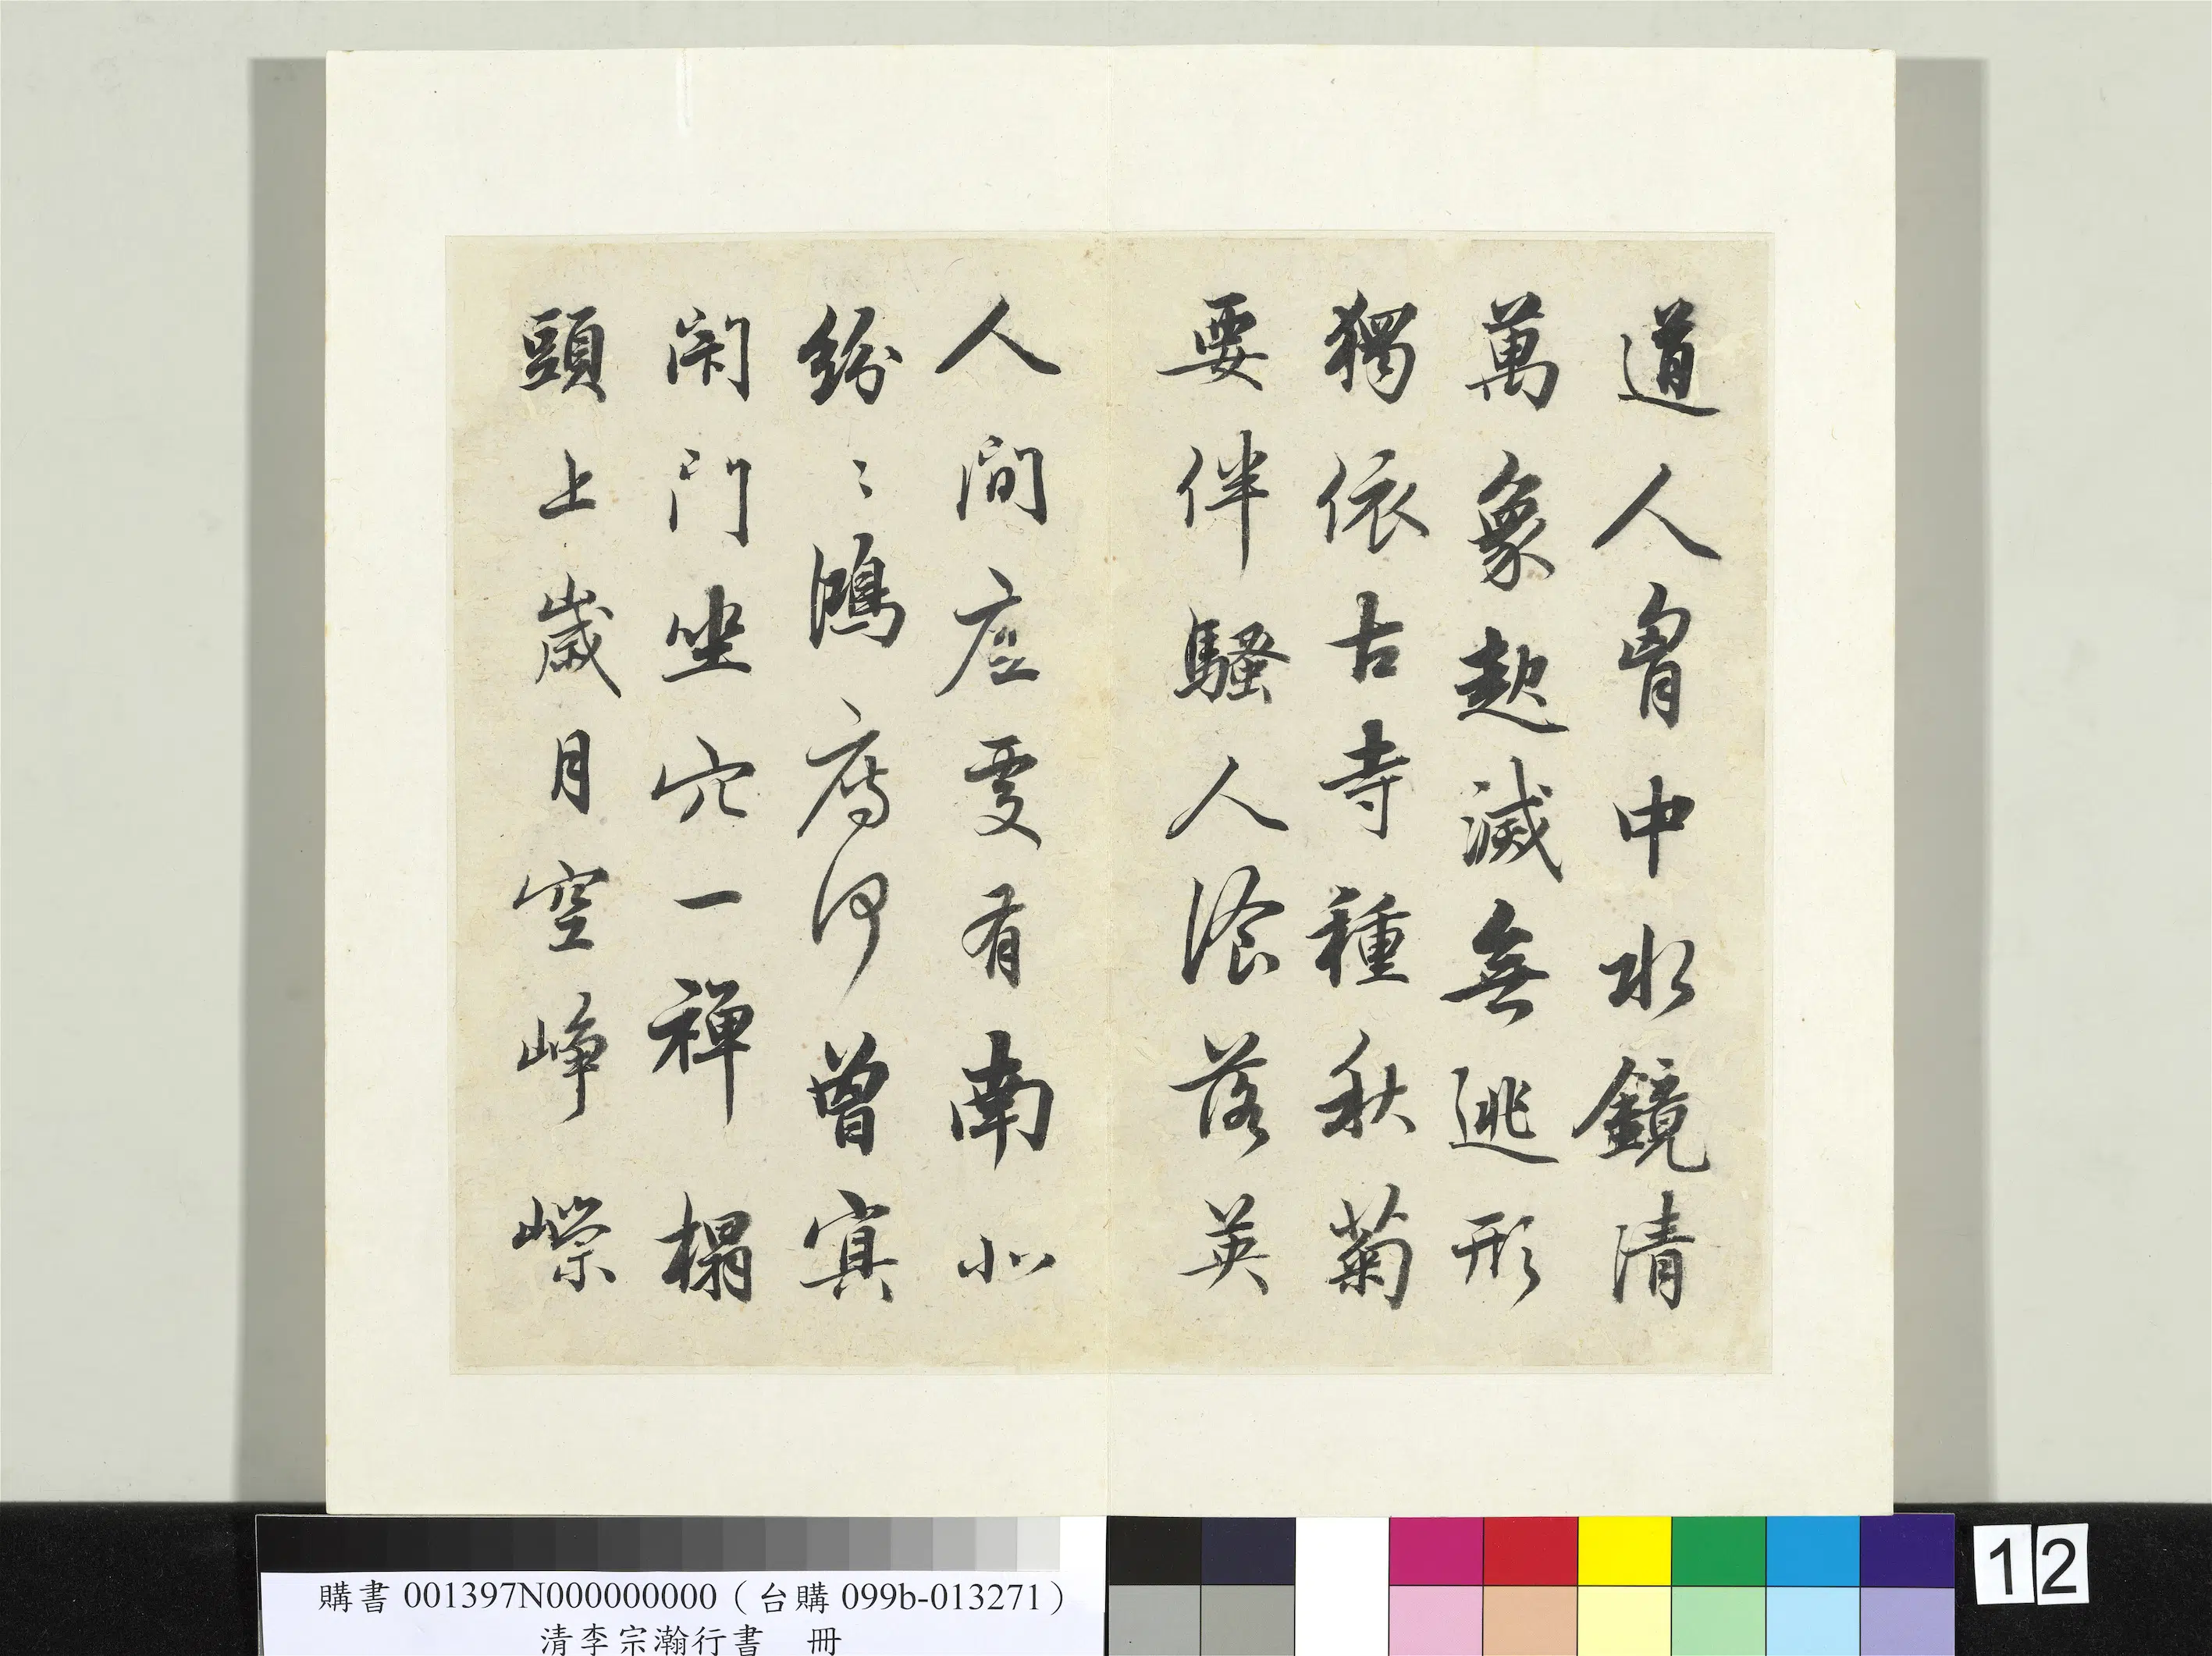 道人胷中水鏡清
萬象起滅無逃形
獨依古寺種秋菊
要伴騷人飡落英
人間底處有南北
紛〻鴻鴈何曾冥
閉門坐穴一禪榻
頭上歲月空崢嶸
購書 001397N000000000（台購 099b-013271）
清李宗瀚行書 冊
12